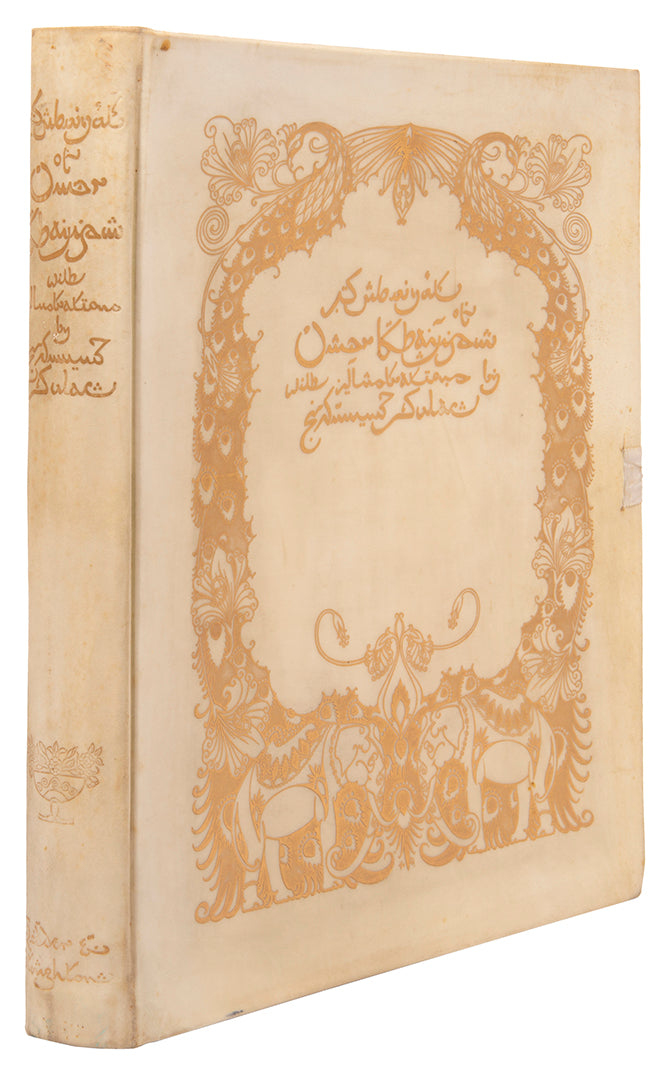 Rubáiyát
of
Omar
Khayyam
with
Illustrations
by
Edmund
Dulac
Hodder &
Stoughton
Rubáiyát
of
Omar Khayyam
with illustrations by
Edmund Dulac